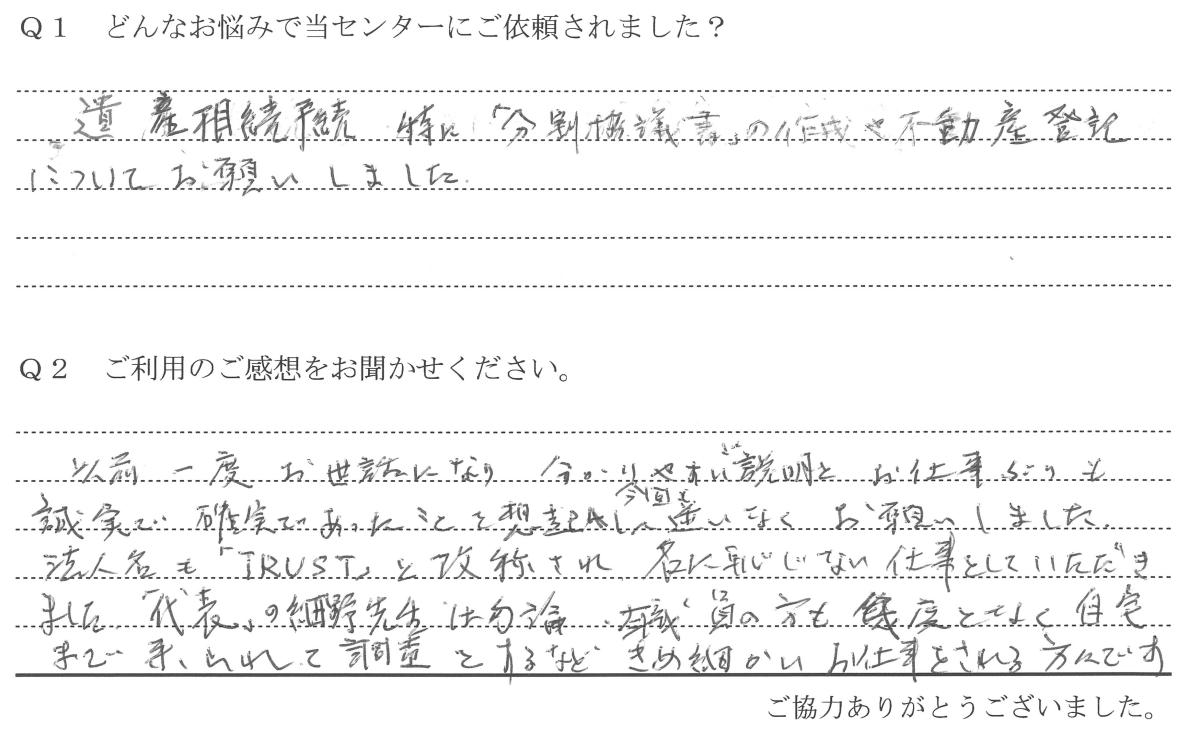 Q1 どんなお悩みで当センターにご依頼されました？
遺産相続手続 特に「分割協議書」の作成や不動産登記
についてお願いしました.
Q2 ご利用のご感想をお聞かせください。
以前一度お世話になり 分かりやすい説明とお仕事ぶりも
誠実で確実であったことを想起し 今回も 迷いなくお願いしました.
法人名も「TRUST」と改称され 名に恥じない仕事をしていただき
ました「代表」の細野先生は勿論、職員の方も幾度となく自宅
まで来られて調査をするなどきめ細かいお仕事をされる方々です
ご協力ありがとうございました。